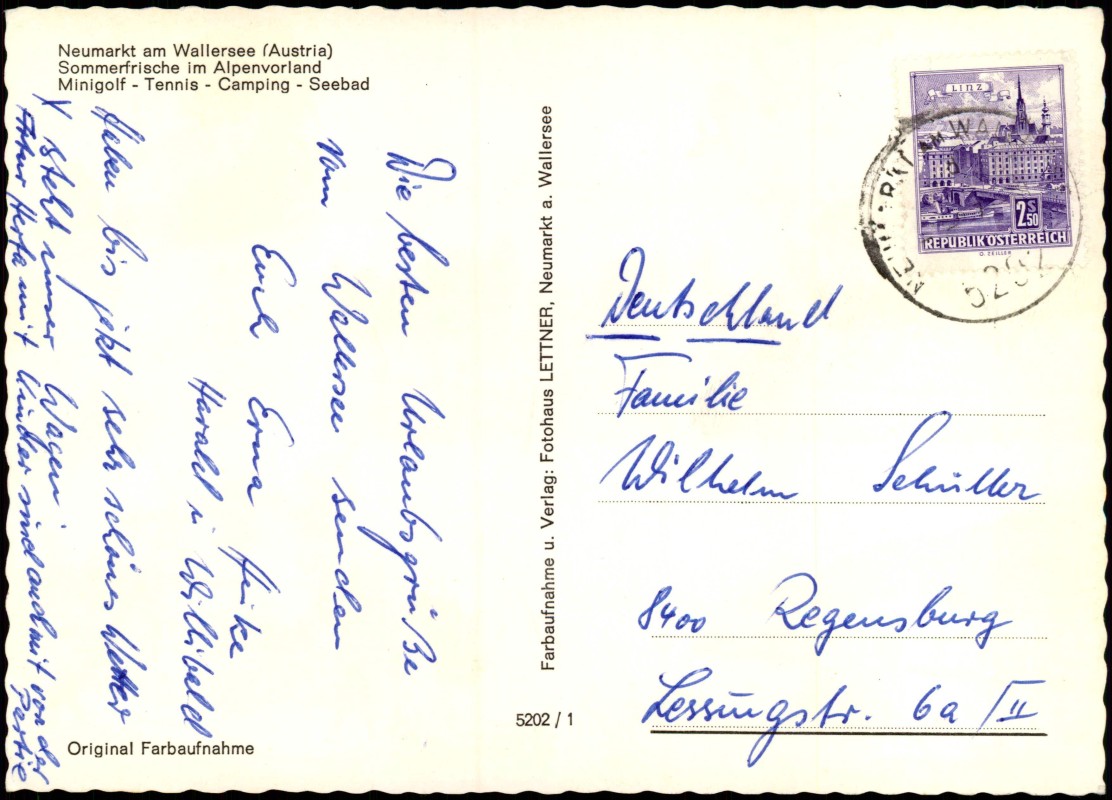 Neumarkt am Wallersee (Austria)
Sommerfrische im Alpenvorland
Minigolf - Tennis - Camping - Seebad
Die besten Urlaubsgrüße
vom Wallersee senden
Euch Erna Heike
Harald u Willibald
Haben bis jetzt sehr schönes Wetter
X steht unser Wagen
Artur Herta mit Kinder sind auch mit von der
Partie
Original Farbaufnahme
5202 / 1
Farbaufnahme u. Verlag: Fotohaus LETTNER, Neumarkt a. Wallersee
LINZ
2 S 50
REPUBLIK ÖSTERREICH
O. ZEILLER
NEUMARKT AM WALL
5202
Deutschland
Familie
Wilhelm Schüller
8400 Regensburg
Lessingstr. 6a/II